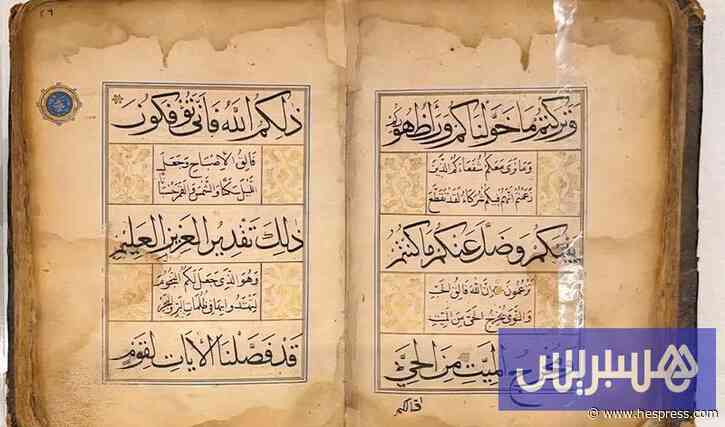 وتركتم ما خولناكم وراء ظهور
وما نرى معكم شفعاءكم الذين
زعمتم أنهم فيكم شركاء لقد تقطع
بينكم وضل عنكم ما كنتم
تزعمون إن الله فالق الحب
والنوى يخرج الحي من الميت
ومخرج الميت من الحي
ذلكم الله فأنى تؤفكون
فالق الإصباح وجعل
الليل سكنا والشمس والقمر حسبانا
ذلك تقدير العزيز العليم
وهو الذي جعل لكم النجوم
لتهتدوا بها في ظلمات البر والبحر
قد فصلنا الآيات لقوم
هسبريس
© www.hespress.com